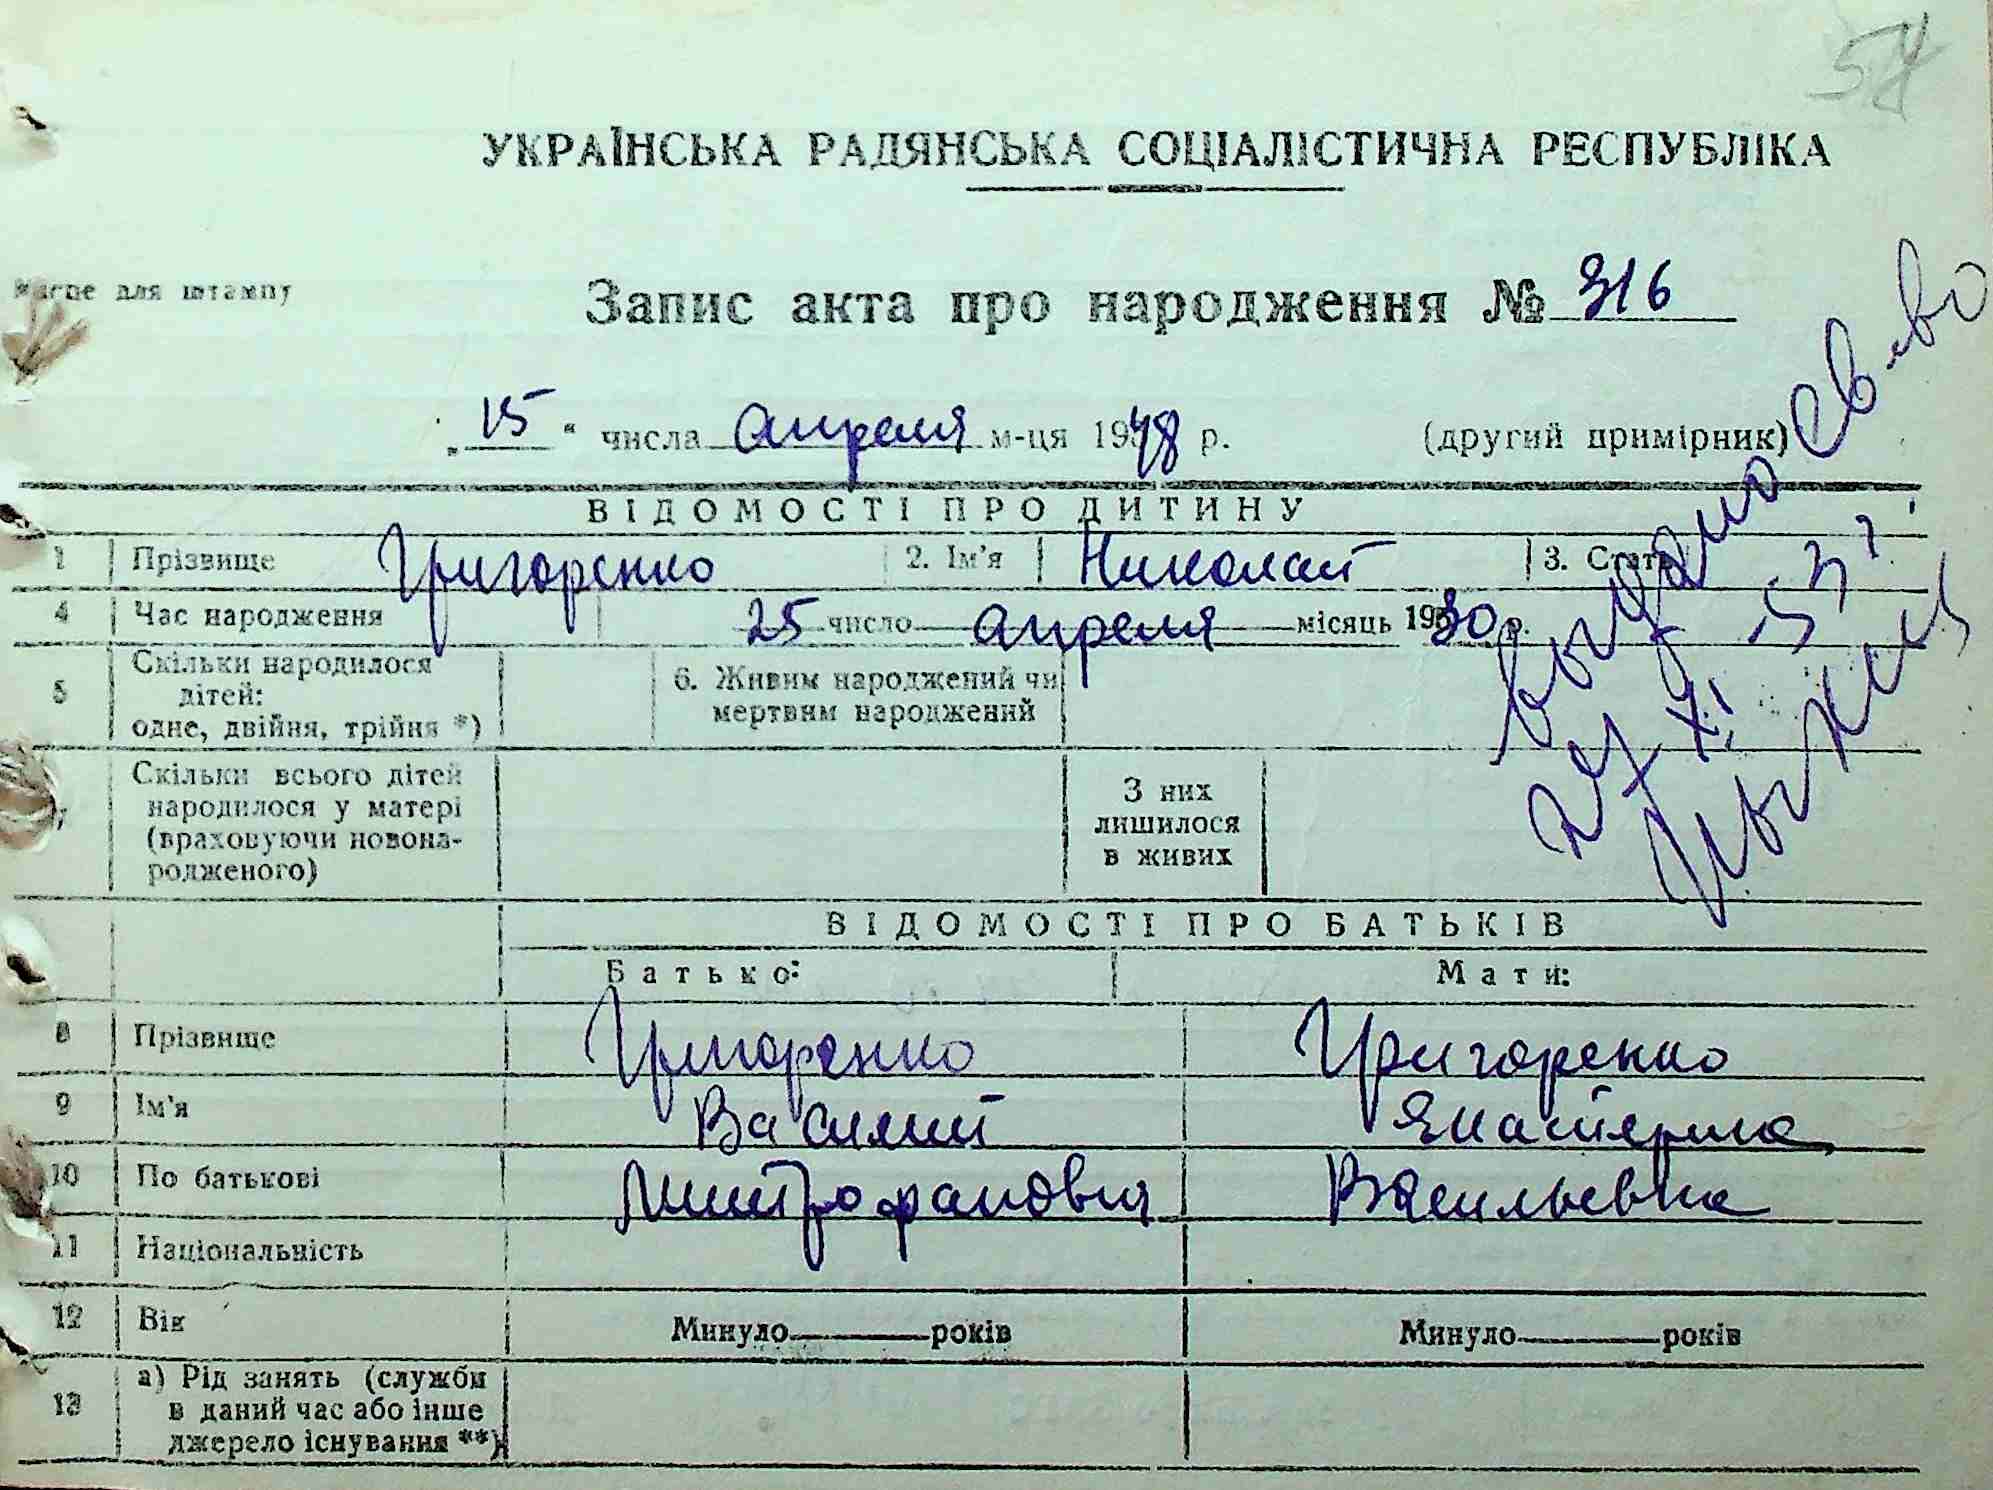 УКРАЇНСЬКА РАДЯНСЬКА СОЦІАЛІСТИЧНА РЕСПУБЛІКА
Місце для штампу
Запис акта про народження № 316
„15“ числа апреля м-ця 1948 р. (другий примірник)
выдано св-во
ВІДОМОСТІ ПРО ДИТИНУ
1 Прізвище Григоренко 2. Ім'я Николай 3. Стать
4 Час народження 25 число апреля місяць 1930 р.
5 Скільки народилося дітей: одне, двійня, трійня *) 6. Живим народжений чи мертвим народжений
7 Скільки всього дітей народилося у матері (враховуючи новонародженого) З них лишилося в живих
ВІДОМОСТІ ПРО БАТЬКІВ
Батько: Мати:
8 Прізвище Григоренко Григоренко
9 Ім'я Василий Екатерина
10 По батькові Митрофанович Васильевна
11 Національність
12 Вік Минуло років Минуло років
13 а) Рід занять (служби в даний час або інше джерело існування **)